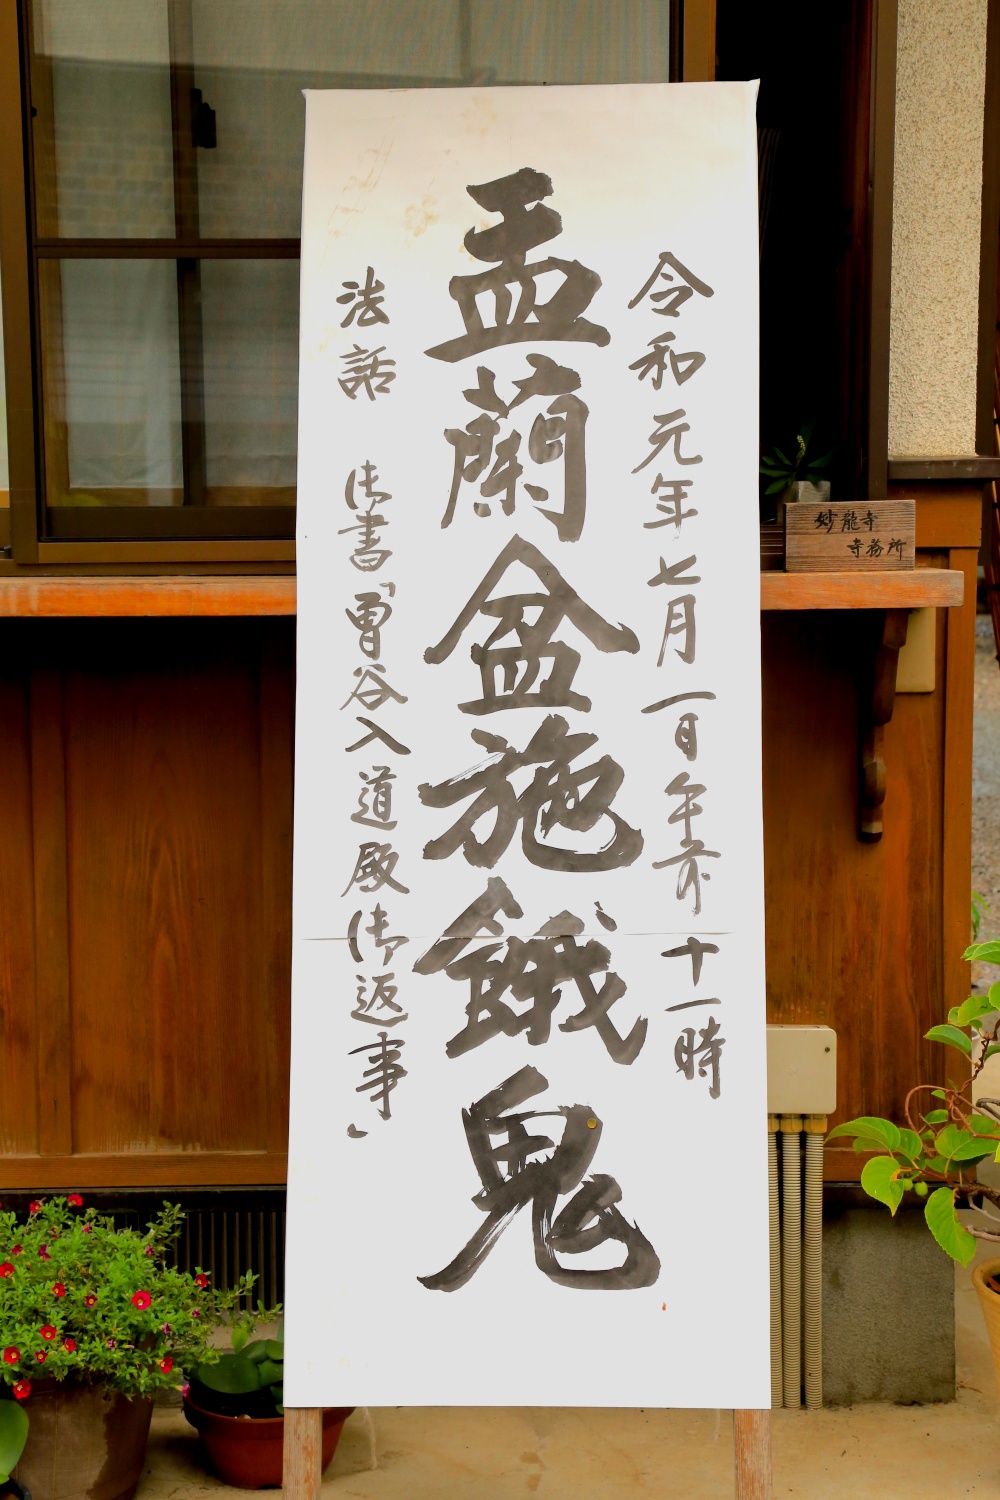 令和元年七月一日午前十一時
盂蘭盆施餓鬼
法話 御書「曽谷入道殿御返事」
妙龍寺
寺務所